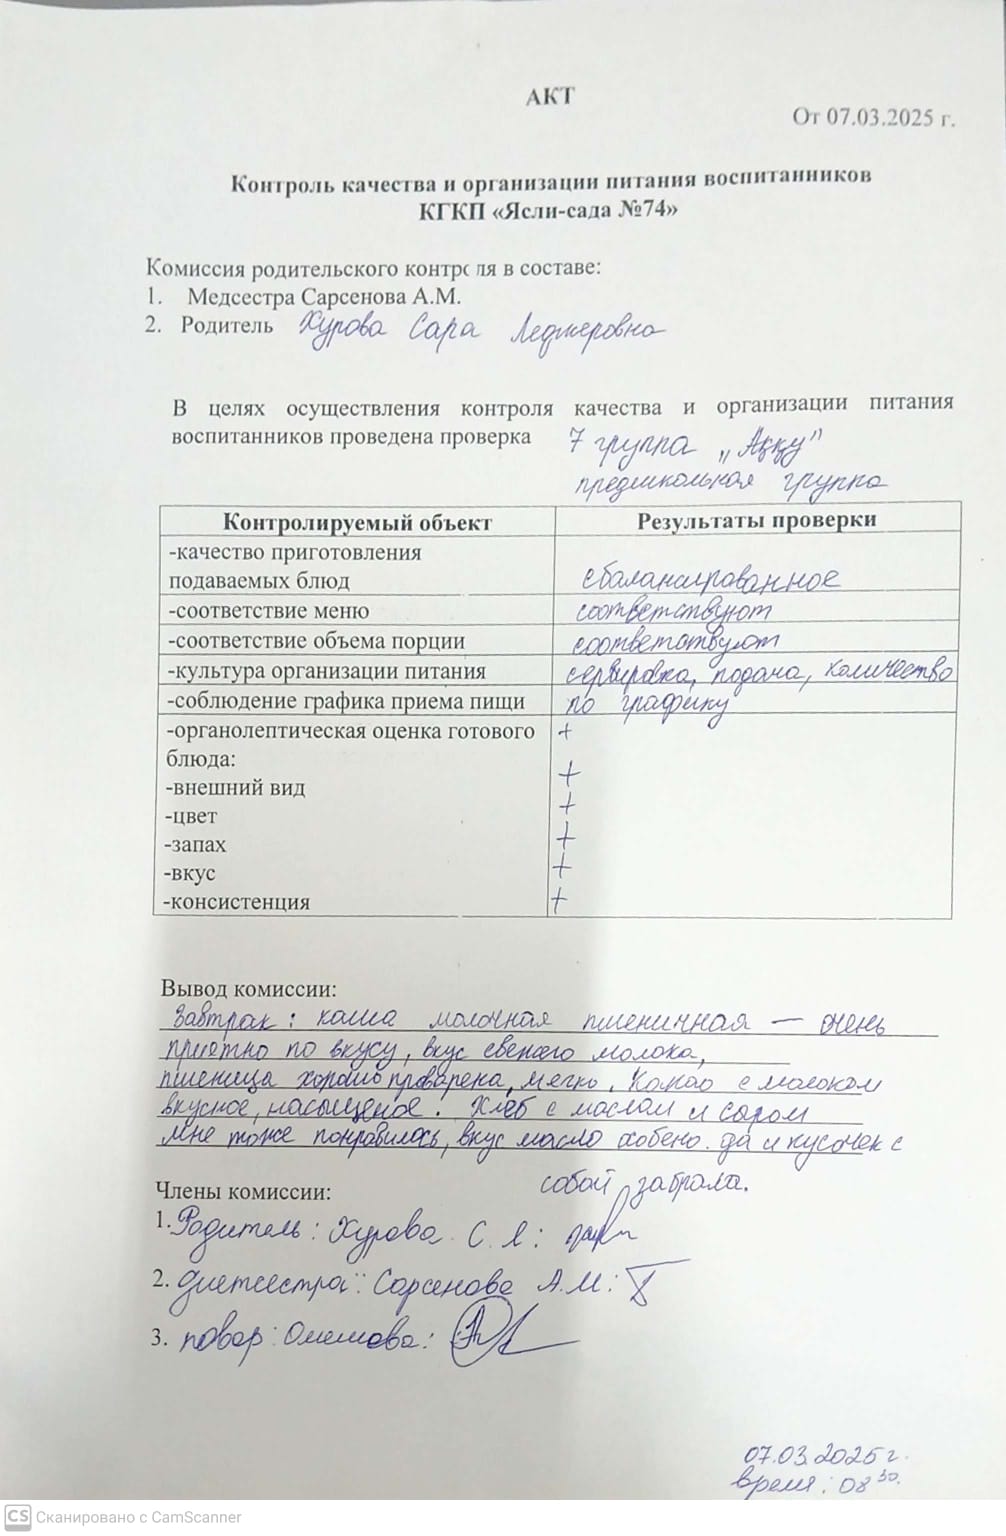 АКТ
От 07.03.2025 г.
Контроль качества и организации питания воспитанников
КГКП «Ясли-сада №74»
Комиссия родительского контроля в составе:
1. Медсестра Сарсенова А.М.
2. Родитель Хурова Сара Леджеровна
В целях осуществления контроля качества и организации питания
воспитанников проведена проверка 7 группа „Аққу"
предшкольная группа
Контролируемый объект Результаты проверки
-качество приготовления
подаваемых блюд сбалансированное
-соответствие меню соответствуют
-соответствие объема порции соответствуют
-культура организации питания сервировка, подача, количество
-соблюдение графика приема пищи по графику
-органолептическая оценка готового +
блюда:
-внешний вид +
-цвет +
-запах +
-вкус +
-консистенция +
Вывод комиссии:
Завтрак: каша молочная пшеничная — очень
приятно по вкусу, вкус свежего молока,
пшеница хорошо проварена, мягко. Какао с молоком
вкусное, насыщеное. Хлеб с маслом и сыром
мне тоже понравилось, вкус масло особено. да и кусочек с
собой забрала.
Члены комиссии:
1. Родитель: Хурова С. Л:
2. диетсестра: Сарсенова А.М:
3. повар: Омешова:
07.03.2025 г.
время: 08 30.
CS Сканировано с CamScanner